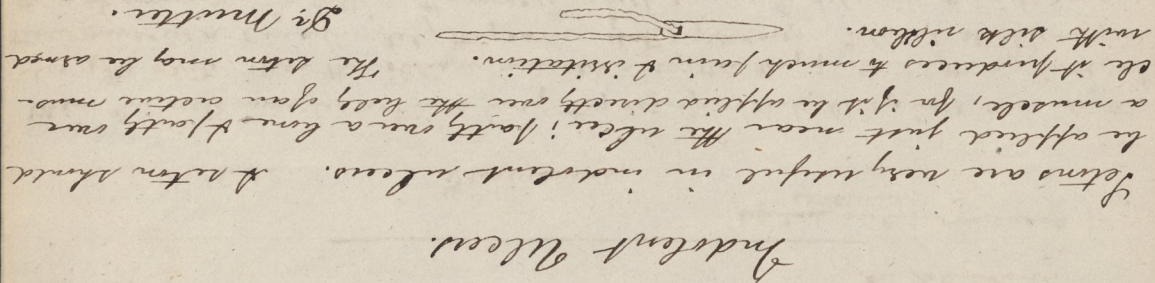 Indolent Ulcers.
Setons are very useful in indolent ulcers. A seton should
be applied just near the ulcer; partly over a bone & partly over
a muscle, for if it be applied directly over the belly of an active mus-
cle it produces to much pain & iritation. The seton may be armed
with silk ribbon.
Dr. Mutter.